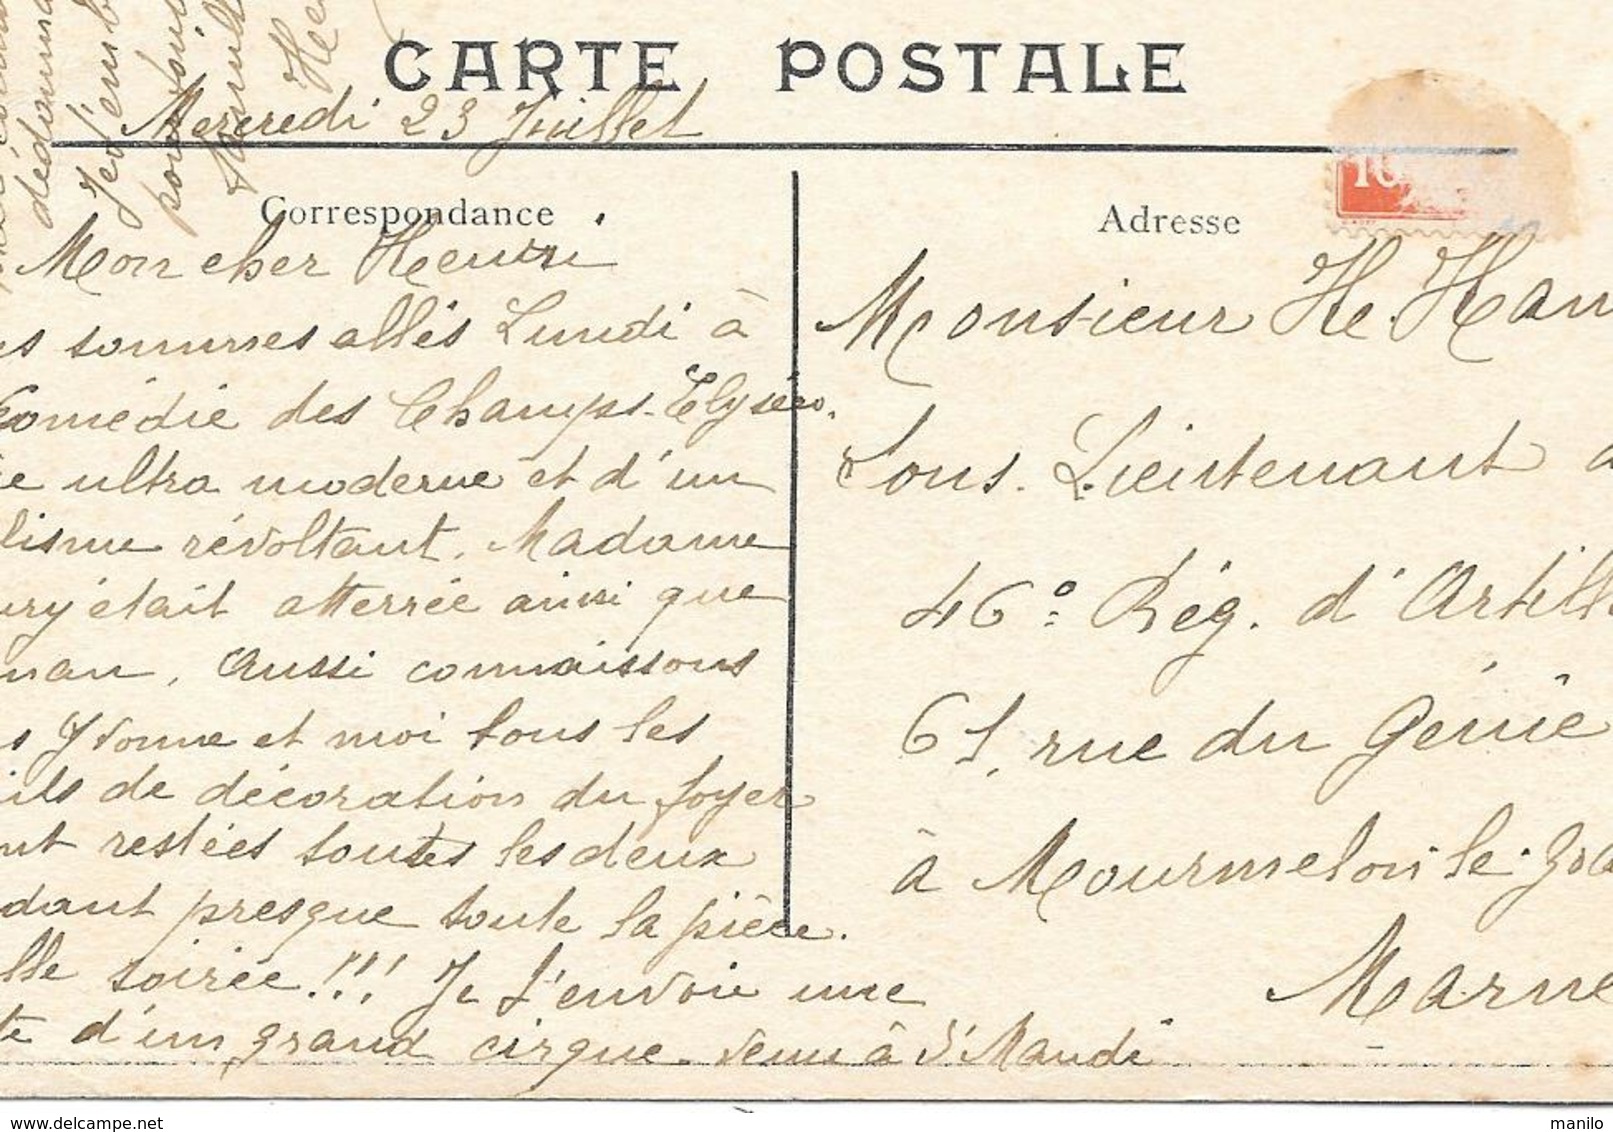 CARTE POSTALE
Mercredi 23 Juillet
Correspondance
Adresse
10
Mon cher Henri
s sommes allés Lundi à
Comédie des Champs-Elysées.
ce ultra moderne et d'un
lisme révoltant. Madame
ury était atterrée ainsi que
man, Aussi connaissons
s Yvonne et moi tous les
ils de décoration du foyer
nt restées toutes les deux
dant presque toute la pièce.
lle soirée!!! Je t'envoie une
te d'un grand cirque venu à St Mandé
Monsieur He. Han
Sous-Lieutenant a
46e Rég. d'Artill
61, rue du Génie
à Mourmelon-le-Gra
Marne
dédomma
Je t'emb
pour
Henri
manilo